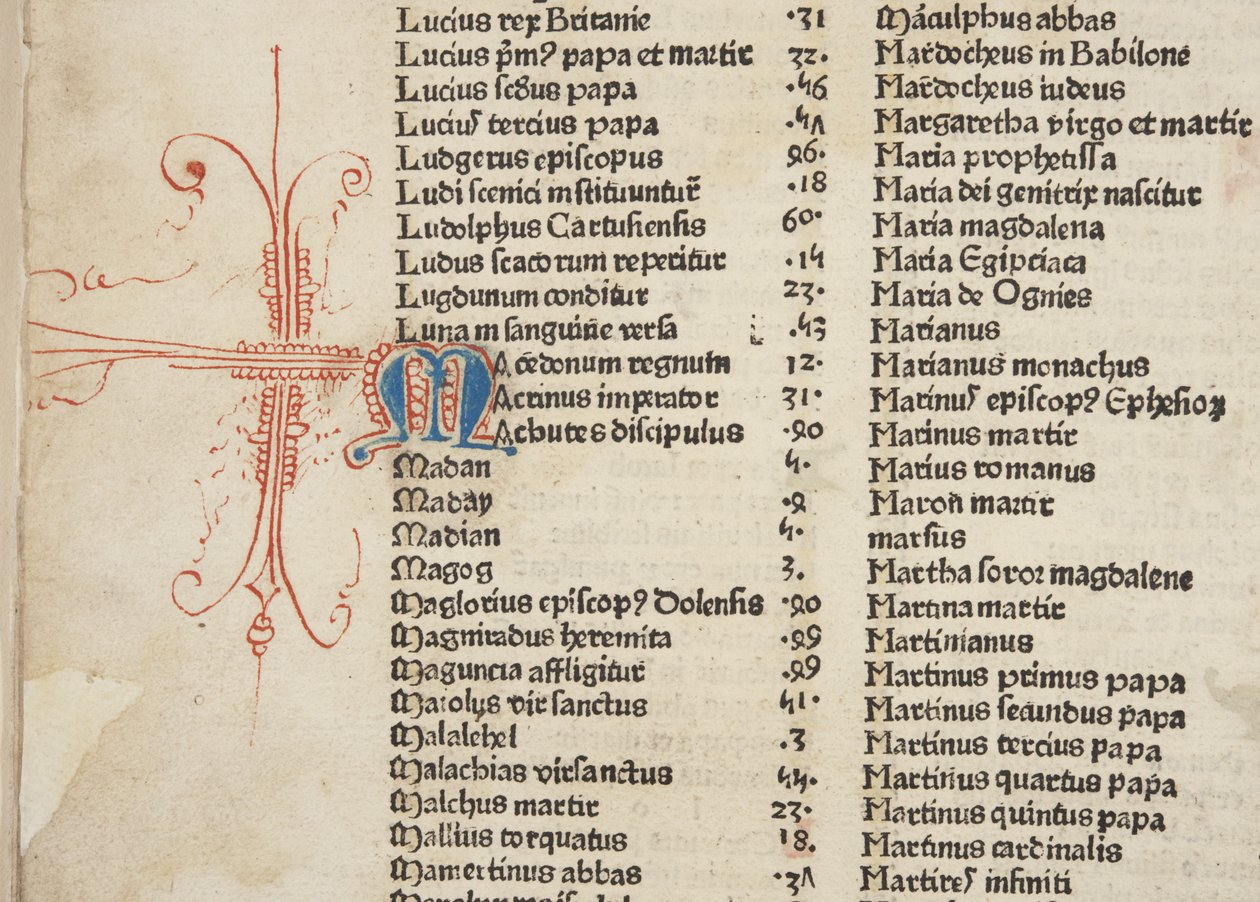 Lucius rex Britanie ·31
Lucius p̄m⁹ papa et martir 32·
Lucius scd̄us papa ·56
Lucius tercius papa ·57
Ludgerus episcopus 46·
Ludi scenici instituuntur̄ ·18
Ludolphus Cartusiensis 60·
Ludus scacorum reperitur ·15
Lugdunum conditur 23·
Luna in sanguinē versa ·53
MAcedonum regnum 12·
Acrinus imperator 31·
Achutes discipulus ·40
Madan 5·
Maday ·4
Madian 5·
Magog 3.
Maglorius episcop⁹ Dolensis ·40
Magniradus heremita ·49
Maguncia affligitur ·49
Maiolus vir sanctus 51·
Malalehel .3
Malachias vir sanctus 55·
Malchus martir 23·
Mallius torquatus 18.
Mamertinus abbas ·37
Māculphus abbas
Mardocheus in Babilone
Mardocheus iudeus
Margaretha virgo et martir
Maria prophetissa
Maria dei genitrix nascitur
Maria magdalena
Maria Egipciaca
Maria de Ognies
Marianus
Marianus monachus
Marinus episcop⁹ Ephesioꝝ
Marinus martir
Marius romanus
Maron martir
marsus
Martha soror magdalene
Martina martir
Martinianus
Martinus primus papa
Martinus secundus papa
Martinus tercius papa
Martinus quartus papa
Martinus quintus papa
Martinus cardinalis
Martires infiniti